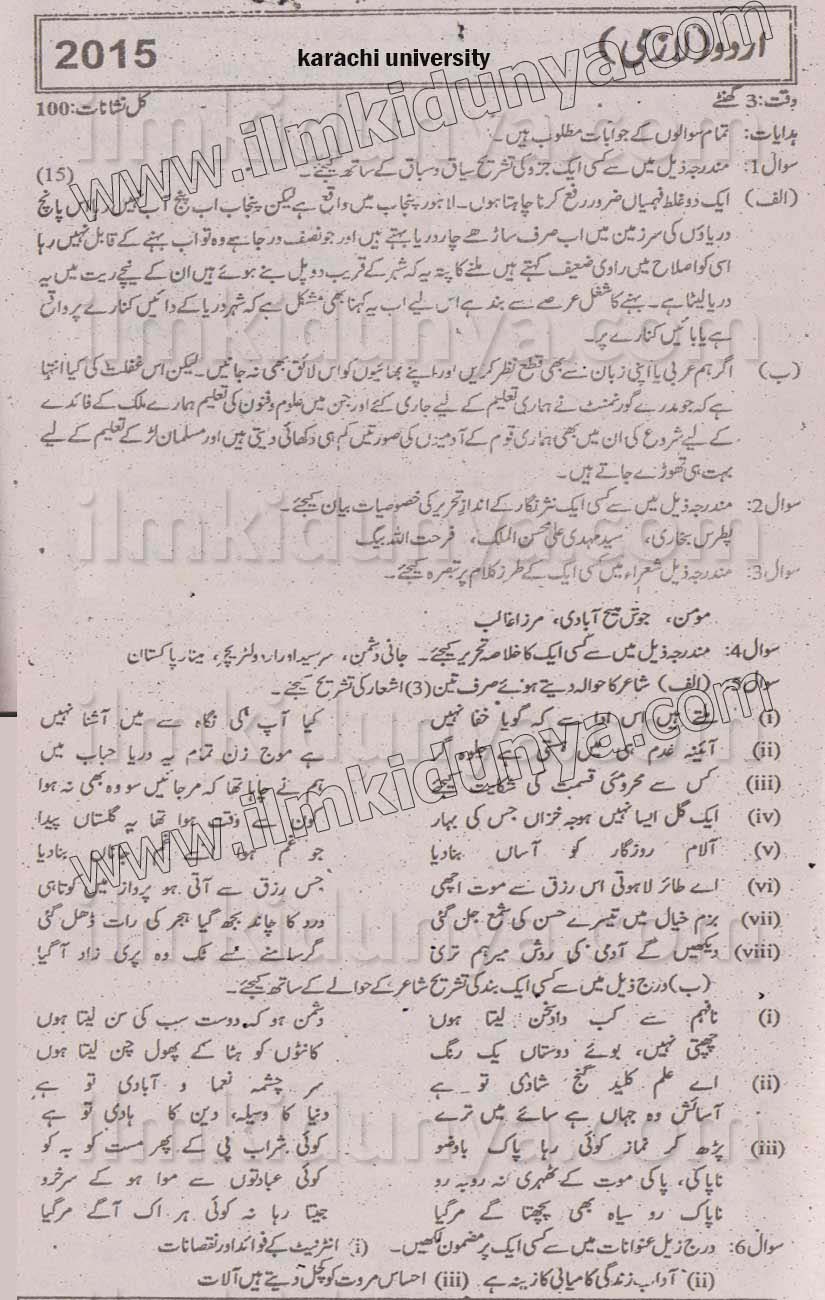 2015
karachi university
اردو (لازمی)
وقت: 3 گھنٹے
کل نشانات: 100
ہدایات: تمام سوالوں کے جوابات مطلوب ہیں۔
سوال 1: مندرجہ ذیل میں سے کسی ایک جزو کی تشریح سیاق و سباق کے ساتھ کیجئے۔ (15)
(الف) ایک دو غلط فہمیاں ضرور رفع کرنا چاہتا ہوں۔ لاہور پنجاب میں واقع ہے لیکن پنجاب اب پنج آب نہیں رہا اس پانچ
دریاؤں کی سرزمین میں اب صرف ساڑھے چار دریا بہتے ہیں اور جو نصف درجا ہے وہ تو اب بہنے کے قابل نہیں رہا
اسی کو اصلاح میں راوی ضعیف کہتے ہیں ملنے کا پتہ یہ کہ شہر کے قریب دو پل بنے ہوئے ہیں ان کے نیچے ریت میں یہ
دریا لیٹا ہے۔ بہنے کا شغل عرصے سے بند ہے اس لیے اب یہ کہنا بھی مشکل ہے کہ شہر دریا کے دائیں کنارے پر واقع
ہے یا بائیں کنارے پر۔
(ب) اگر ہم عربی یا اپنی زبان سے بھی قطع نظر کریں اور اپنے بھائیوں کو اس لائق بھی نہ جانیں۔ لیکن اس غفلت کی کیا انتہا
ہے کہ جو مدرسے گورنمنٹ نے ہماری تعلیم کے لیے جاری کئے اور جن میں علوم و فنون کی تعلیم ہمارے ملک کے فائدے
کے لیے شروع کی ان میں بھی ہماری قوم کے آدمیوں کی صورتیں کم ہی دکھائی دیتی ہیں اور مسلمان لڑکے تعلیم کے لیے
بہت ہی تھوڑے جاتے ہیں۔
سوال 2: مندرجہ ذیل میں سے کسی ایک نثر نگار کے انداز تحریر کی خصوصیات بیان کیجئے۔
پطرس بخاری، سید مہدی علی محسن الملک، فرحت اللہ بیگ
سوال 3: مندرجہ ذیل شعراء میں کسی ایک کے طرز کلام پر تبصرہ کیجئے۔
مومن، جوش ملیح آبادی، مرزا غالب
سوال 4: مندرجہ ذیل میں سے کسی ایک کا خلاصہ تحریر کیجئے۔ جانی دشمن، سرسید اور اردو لٹریچر، مینار پاکستان
سوال 5: (الف) شاعر کا حوالہ دیتے ہوئے صرف تین (3) اشعار کی تشریح کیجئے۔
(i) ملتے ہیں اس ادا سے کہ گویا خفا نہیں کیا آپ کی نگاہ سے میں آشنا نہیں
(ii) آئینہ عدم ہی میں ہستی ہے جلوہ گر ہے موج زن تمام یہ دریا حباب میں
(iii) کس سے محرومئی قسمت کی شکایت کیجئے ہم نے چاہا تھا کہ مر جائیں سو وہ بھی نہ ہوا
(iv) ایک گل ایسا نہیں ہووے خزاں جس کی بہار کون سے وقت ہوا تھا یہ گلستاں پیدا
(v) آلام روزگار کو آساں بنا دیا جو غم ہوا اسے غم جاناں بنا دیا
(vi) اے طائر لاہوتی اس رزق سے موت اچھی جس رزق سے آتی ہو پرواز میں کوتاہی
(vii) بزم خیال میں تیرے حسن کی شمع جل گئی درد کا چاند بجھ گیا ہجر کی رات ڈھل گئی
(viii) دیکھیں گے آدمی کی روش میر ہم تری گر سامنے سے ٹک وہ پری زاد آ گیا
(ب) درج ذیل میں سے کسی ایک بند کی تشریح شاعر کے حوالے کے ساتھ کیجئے۔
(i) نافہم سے کب داد سخن لیتا ہوں دشمن ہو کہ دوست سب کی سن لیتا ہوں
چھپتی نہیں، بوئے دوستاں یک رنگ کانٹوں کو ہٹا کے پھول چن لیتا ہوں
(ii) اے علم کلید گنج شادی تو ہے سر چشمہ نعما و آبادی تو ہے
آسائش دو جہاں ہے سائے میں ترے دنیا کا وسیلہ، دین کا ہادی تو ہے
(iii) پڑھ کر نماز کوئی رہا پاک باوضو کوئی شراب پی کے پھر مست کو بہ کو
ناپاکی، پاکی موت کے ٹھہری نہ روبہ رو کوئی عبادتوں سے موا ہو کے سرخرو
ناپاک رو سیاہ بھی پچھتا کے مر گیا جیتا رہا نہ کوئی ہر اک آگے مر گیا
سوال 6: درج زیل عنوانات میں سے کسی ایک پر مضمون لکھیں۔ (i) انٹرنیٹ کے فوائد اور نقصانات
(ii) آداب زندگی کامیابی کا زینہ ہے (iii) احساس مروت کو کچل دیتے ہیں آلات
www.ilmkidunya.com
www.ilmkidunya.com
ilmkidunya.com
ilmkidunya.com
ilmkidunya.com
ilmkidunya.com
ilmkidunya.com
ilmkidunya.com